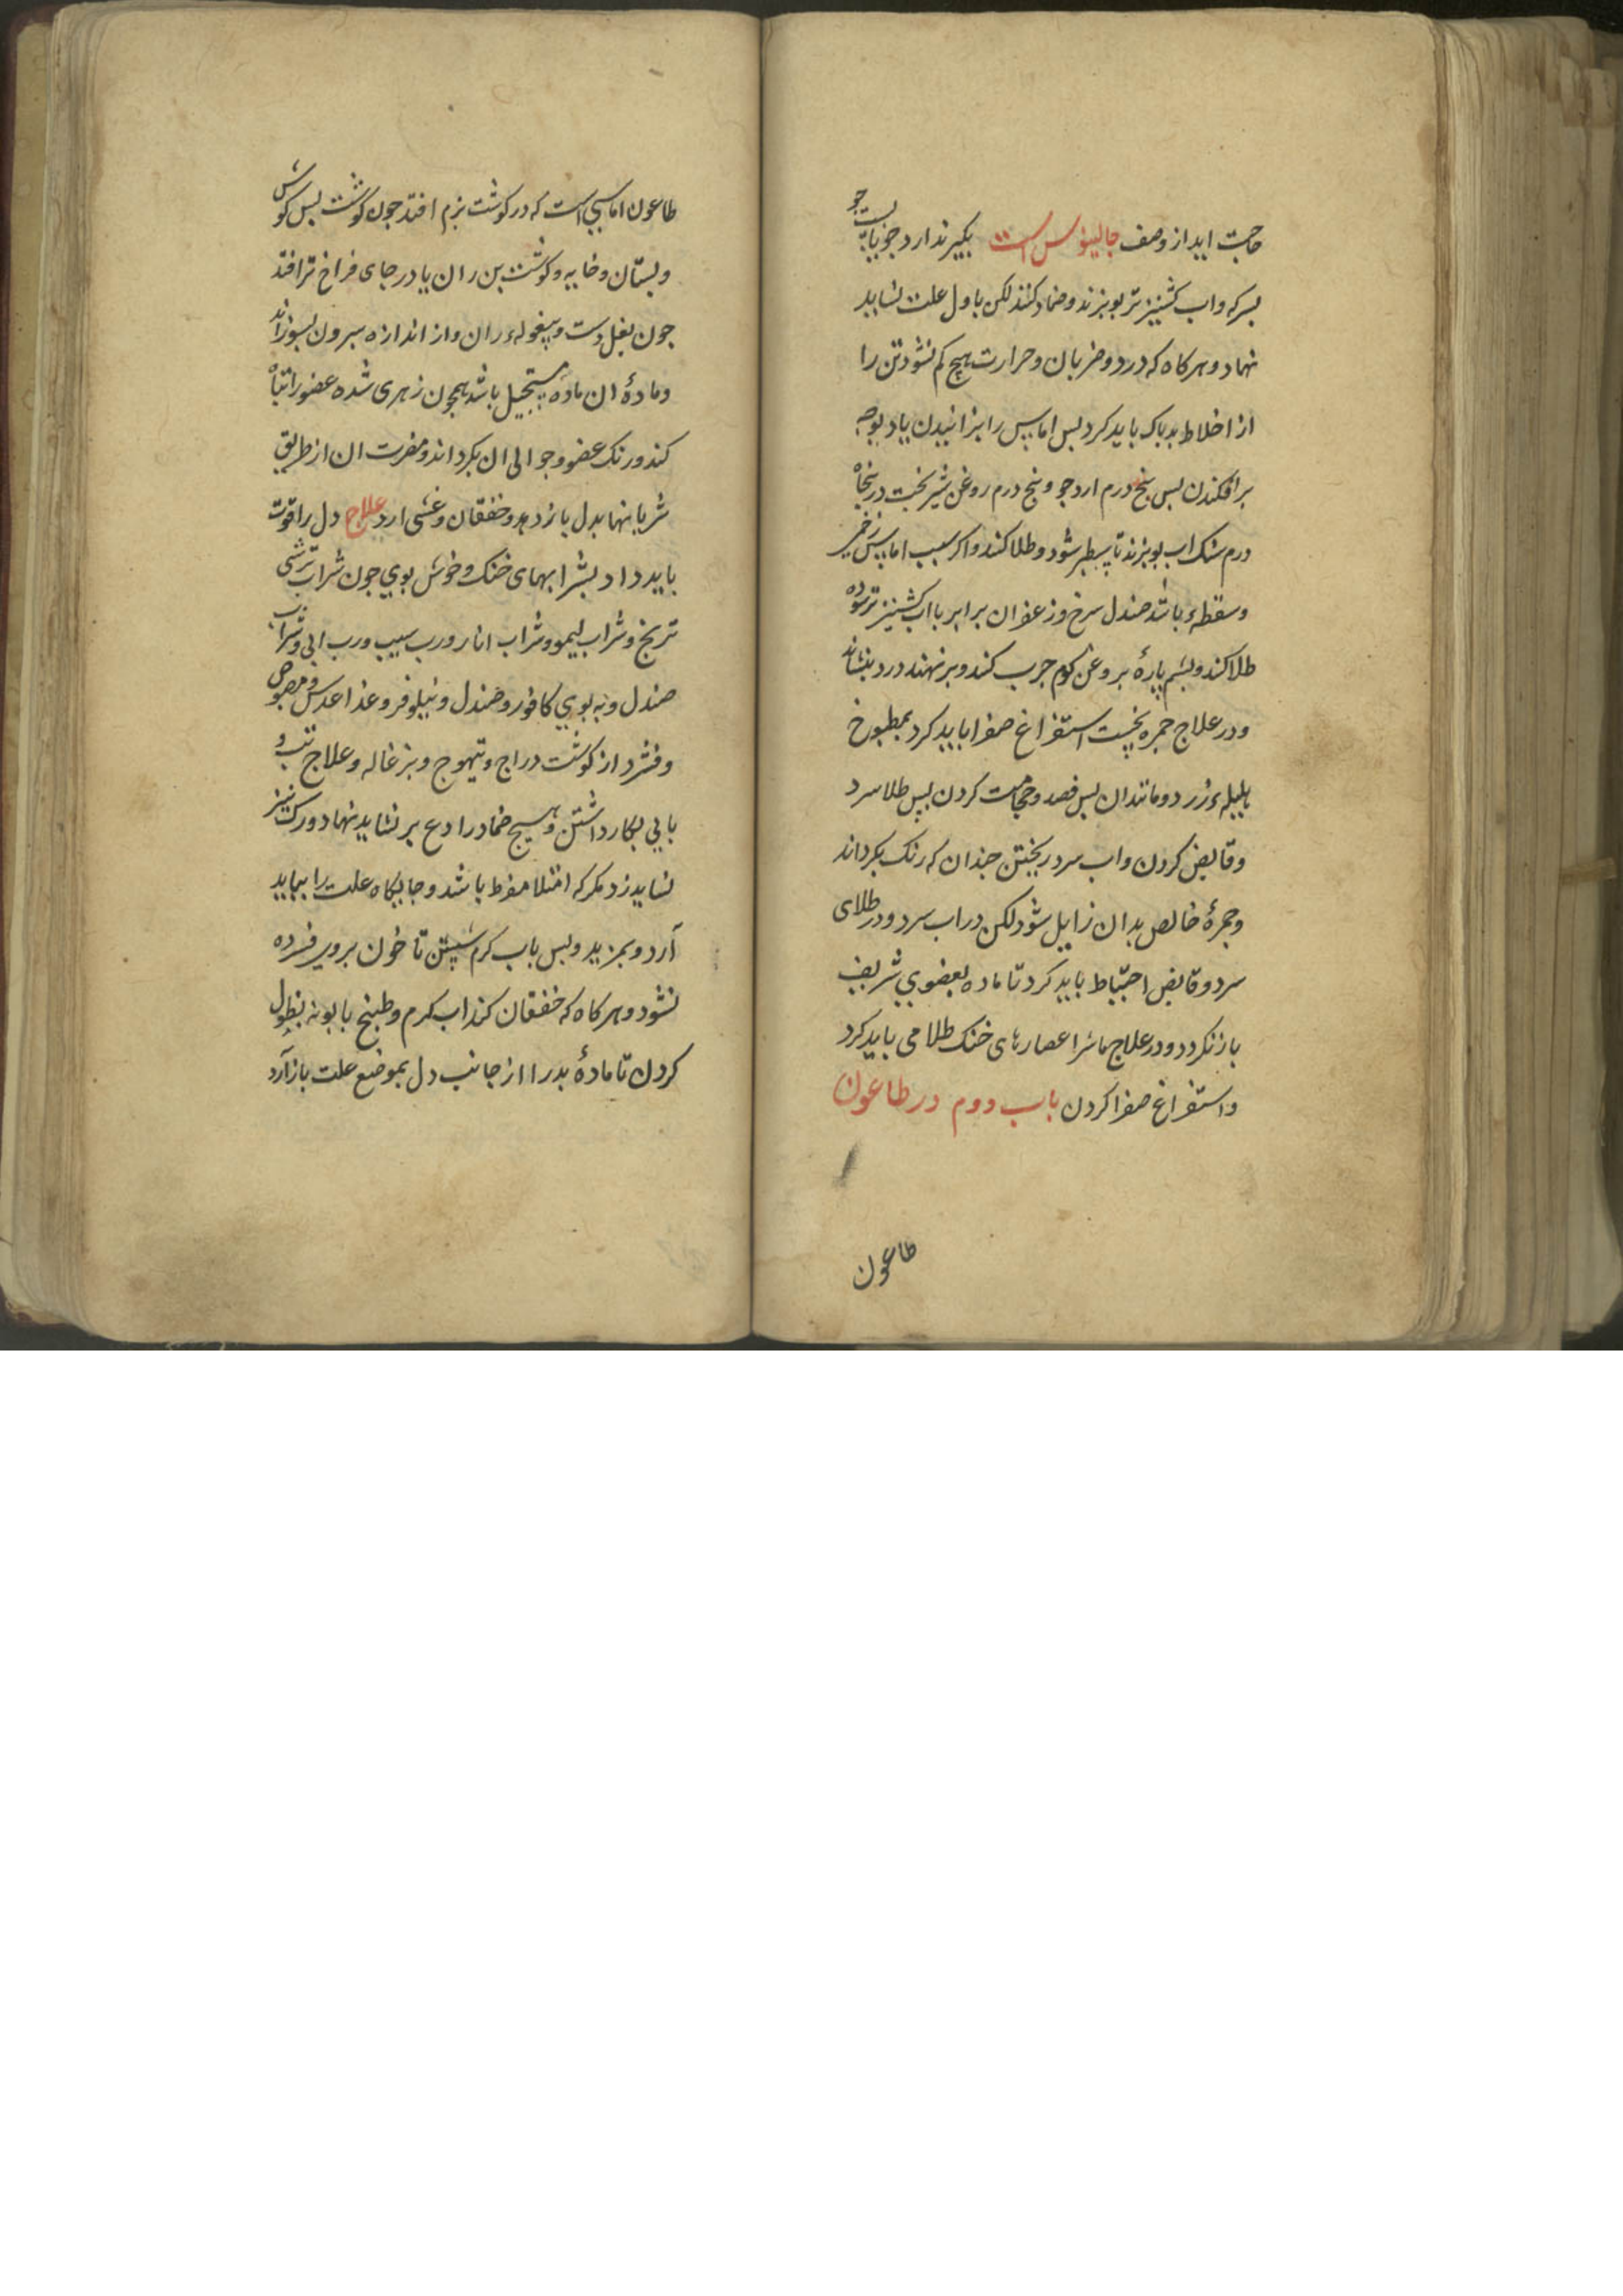 حاجت اید از وصف جالینوس است بکیرند ارد جو با پست جو
بسرکه واب کشنیز تر بوبزند و ضماد کنند لکن باول علت نشاید
نهاد و هر کاه که درد و ضربان و حرارت هیچ کم نشود تن را
از اخلاط بد باک باید کرد بس اماس را بزانیدن یاد بوجه
برافکندن بس بنج درم ارد جو و بنج درم روغن شیربخت در بنجاه
درم سنک اب بوبزند تا سطبر شود و طلا کنند و اکر سبب اماس زخمی
و سقطهٔ باشد صندل سرخ و زعفران برابر با اب کشنیز تر سوده
طلا کنند و بشم پارهٔ بروغن کوم جرب کنند و بر نهند درد بنشاند
و در علاج حمره نخست استفراغ صفرا باید کرد بمطبوخ
هلیلهٔ زرد و مانند ان بس فصد و حجامت کردن بس طلا سرد
و قابض کردن و اب سرد ریختن جندان که رنک بکرداند
و حمرهٔ خالص بدان زایل شود لکن در اب سرد و در طلای
سرد و قابض احتیاط باید کرد تا ماده بعضوی شریف
باز نکردد و در علاج ماشرا عصارهای خنک طلا می باید کرد
و استفراغ صفرا کردن باب دوم در طاعون
طاعون
طاعون اماسی است که در کوشت نرم افتد جون کوشت بس کوش
و بستان و خایه و کوشت بن ران یا در جای فراخ تر افتد
جون بغل دست و بیغولهٔ ران و از اندازه بیرون بسوزاند
و مادهٔ ان ماده مستحیل باشد همجون زهری شده عضو را تباه
کند و رنک عضو و حوالی ان بکرداند و مضرت ان از طریق
شریانها بدل باز دهد و خفقان و غشی ارد علاج دل را قوت
باید داد بشرابهای خنک و خوش بوی جون شراب ترشی
ترنج و شراب لیمو و شراب انار و رب سیب و رب ابی و شراب
صندل و به بوی کافور و صندل و نیلوفر و غذا عدس و مصوص
و فشرد از کوشت دراج و تیهوج و بزغاله و علاج تب و
بابی بکار داشتن و هیچ ضماد رادع بر نشاید نهاد و رک نیز
نشاید زد مکر که امتلا مفرط باشد و جایکاه علت را بیاید
آرد و بمزید و بس باب کرم شستن تا خون برو فسرده
نشود و هر کاه که خفقان کند اب کرم و طبیخ بابونه نطول
کردن تا مادهٔ بد را از جانب دل بموضع علت باز آرد